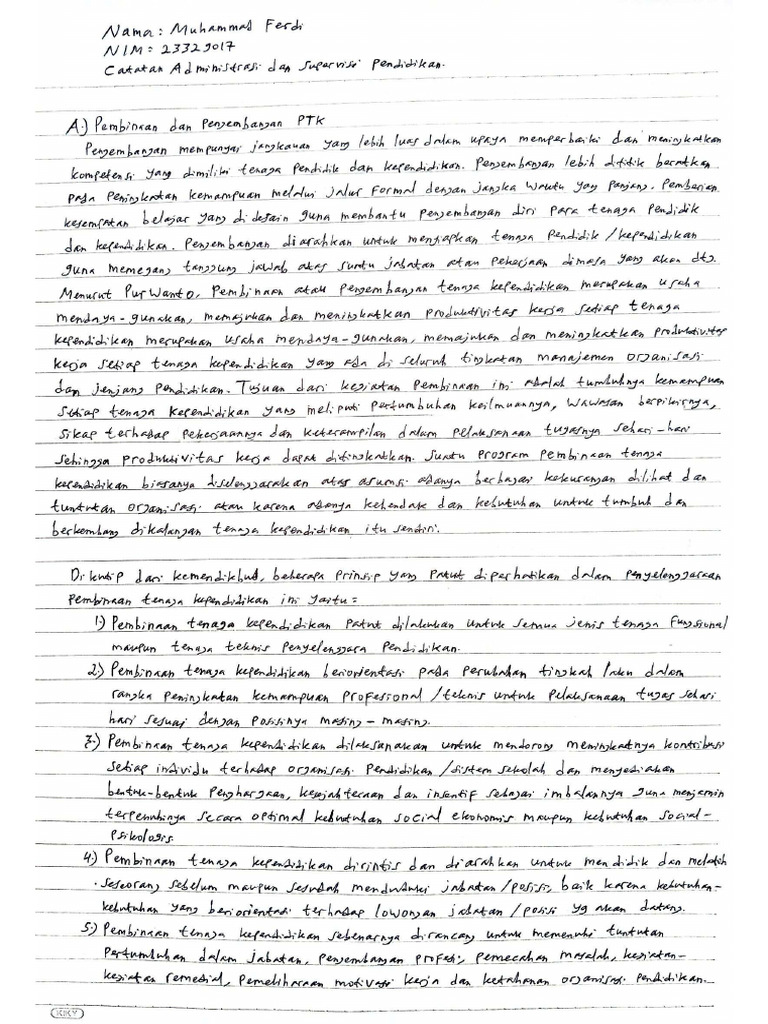 Nama : Muhammad Ferdi
NIM : 23329017
Catatan Administrasi dan Supervisi Pendidikan.
A.) Pembinaan dan Pengembangan PTK
Pengembangan mempunyai jangkauan yang lebih luas dalam upaya memperbaiki dan meningkatkan
kompetensi yang dimiliki tenaga pendidik dan kependidikan. Pengembangan lebih dititik beratkan
pada peningkatan kemampuan melalui jalur formal dengan jangka waktu yang panjang. Pemberian
kesempatan belajar yang di desain guna membantu pengembangan diri para tenaga pendidik
dan kependidikan. Pengembangan diarahkan untuk menyiapkan tenaga pendidik / kependidikan
guna memegang tanggung jawab atas suatu jabatan atau pekerjaan dimasa yang akan dtg.
Menurut Purwanto, Pembinaan atau pengembangan tenaga kependidikan merupakan usaha
mendaya-gunakan, memajukan dan meningkatkan produktivitas kerja setiap tenaga
kependidikan merupakan usaha mendaya-gunakan, memajukan dan meningkatkan produktivitas
kerja setiap tenaga kependidikan yang ada di seluruh tingkatan manajemen organisasi
dan jenjang pendidikan. Tujuan dari kegiatan pembinaan ini adalah tumbuhnya kemampuan
setiap tenaga kependidikan yang meliputi pertumbuhan keilmuannya, wawasan berpikirnya,
sikap terhadap pekerjaannya dan keterampilan dalam pelaksanaan tugasnya sehari-hari
sehingga produktivitas kerja dapat ditingkatkan. Suatu program pembinaan tenaga
kependidikan biasanya diselenggarakan atas asumsi adanya berbagai kekurangan dilihat dan
tuntutan organisasi atau karena adanya kehendak dan kebutuhan untuk tumbuh dan
berkembang dikalangan tenaga kependidikan itu sendiri.
Dikutip dari kemendikbud, beberapa prinsip yang patut diperhatikan dalam penyelenggaraan
pembinaan tenaga kependidikan ini yaitu :
1.) Pembinaan tenaga kependidikan patut dilakukan untuk semua jenis tenaga fungsional
maupun tenaga teknis penyelenggara pendidikan.
2.) Pembinaan tenaga kependidikan beriorientasi pada perubahan tingkah laku dalam
rangka peningkatan kemampuan profesional / teknis untuk pelaksanaan tugas sehari
hari sesuai dengan posisinya masing-masing.
3.) Pembinaan tenaga kependidikan dilaksanakan untuk mendorong meningkatnya kontribusi
setiap individu terhadap organisasi pendidikan / sistem sekolah dan menyediakan
bentuk-bentuk penghargaan, kesejahteraan dan insentif sebagai imbalannya guna menjamin
terpenuhinya secara optimal kebutuhan social ekonomis maupun kebutuhan social-
psikologis.
4.) Pembinaan tenaga kependidikan dirintis dan diarahkan untuk mendidik dan melatih
seseorang sebelum maupun sesudah menduduki jabatan / posisi, baik karena kebutuhan-
kebutuhan yang beriorientasi terhadap lowongan jabatan / posisi yg akan datang.
5.) Pembinaan tenaga kependidikan sebenarnya dirancang untuk memenuhi tuntutan
pertumbuhan dalam jabatan, pengembangan profesi, pemecahan masalah, kegiatan-
kegiatan remedial, pemeliharaan motivasi kerja dan ketahanan organisasi pendidikan.
KIKY